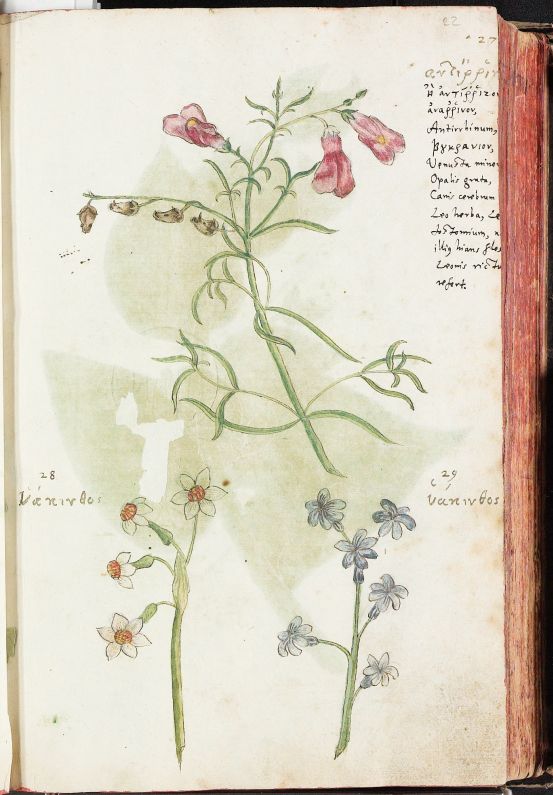 22
27
ἀντίῤῥιν
Ἢ ἀντίῤῥιζον
ἀνάῤῥινον,
Antirrhinum,
βȣκράνιον,
Venusta minor
Opalis grata,
Canis cerebrum
Leo herba, Le
tostomium,
illiq hians
Leonis rictu
refert.
28
ὑάκινθος
29
ὑάκινθος